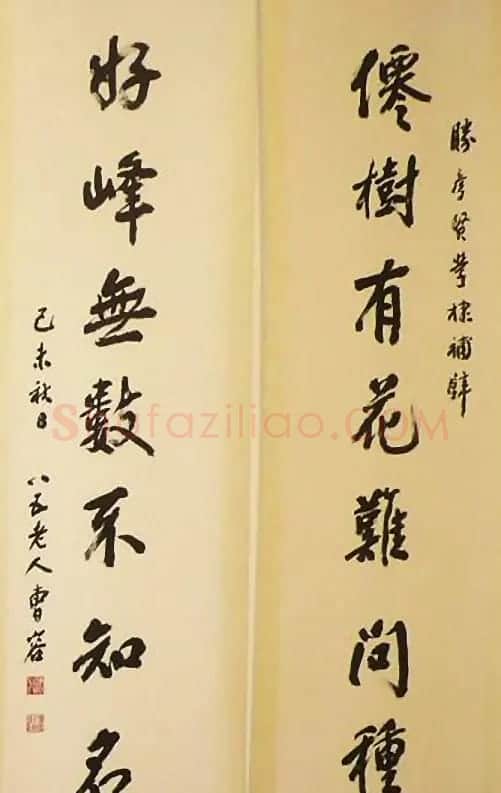 勝彥賢學棣補
僊樹有花難問種
好峰無數不知名
己未秋日 八五老人曹容
Shufaziliao.COM